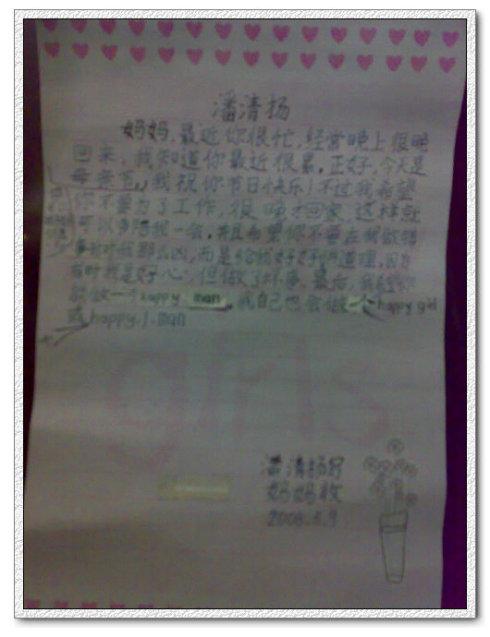 潘清扬
妈妈,最近你很忙,经常晚上很晚
回来,我知道你最近很累。正好,今天是
母亲节,我祝你节日快乐!不过我希望
你不要为了工作,很晚才回家,这样就
可以多陪我一会,并且希望你不要在我做错
事的时候那么凶,而是给我好好讲道理,因为
有时我是好心,但做了坏事。最后,我希望你
能做一个happy man,我自己也会做一个happy girl
或happy
man
girls
潘清扬写
妈妈收